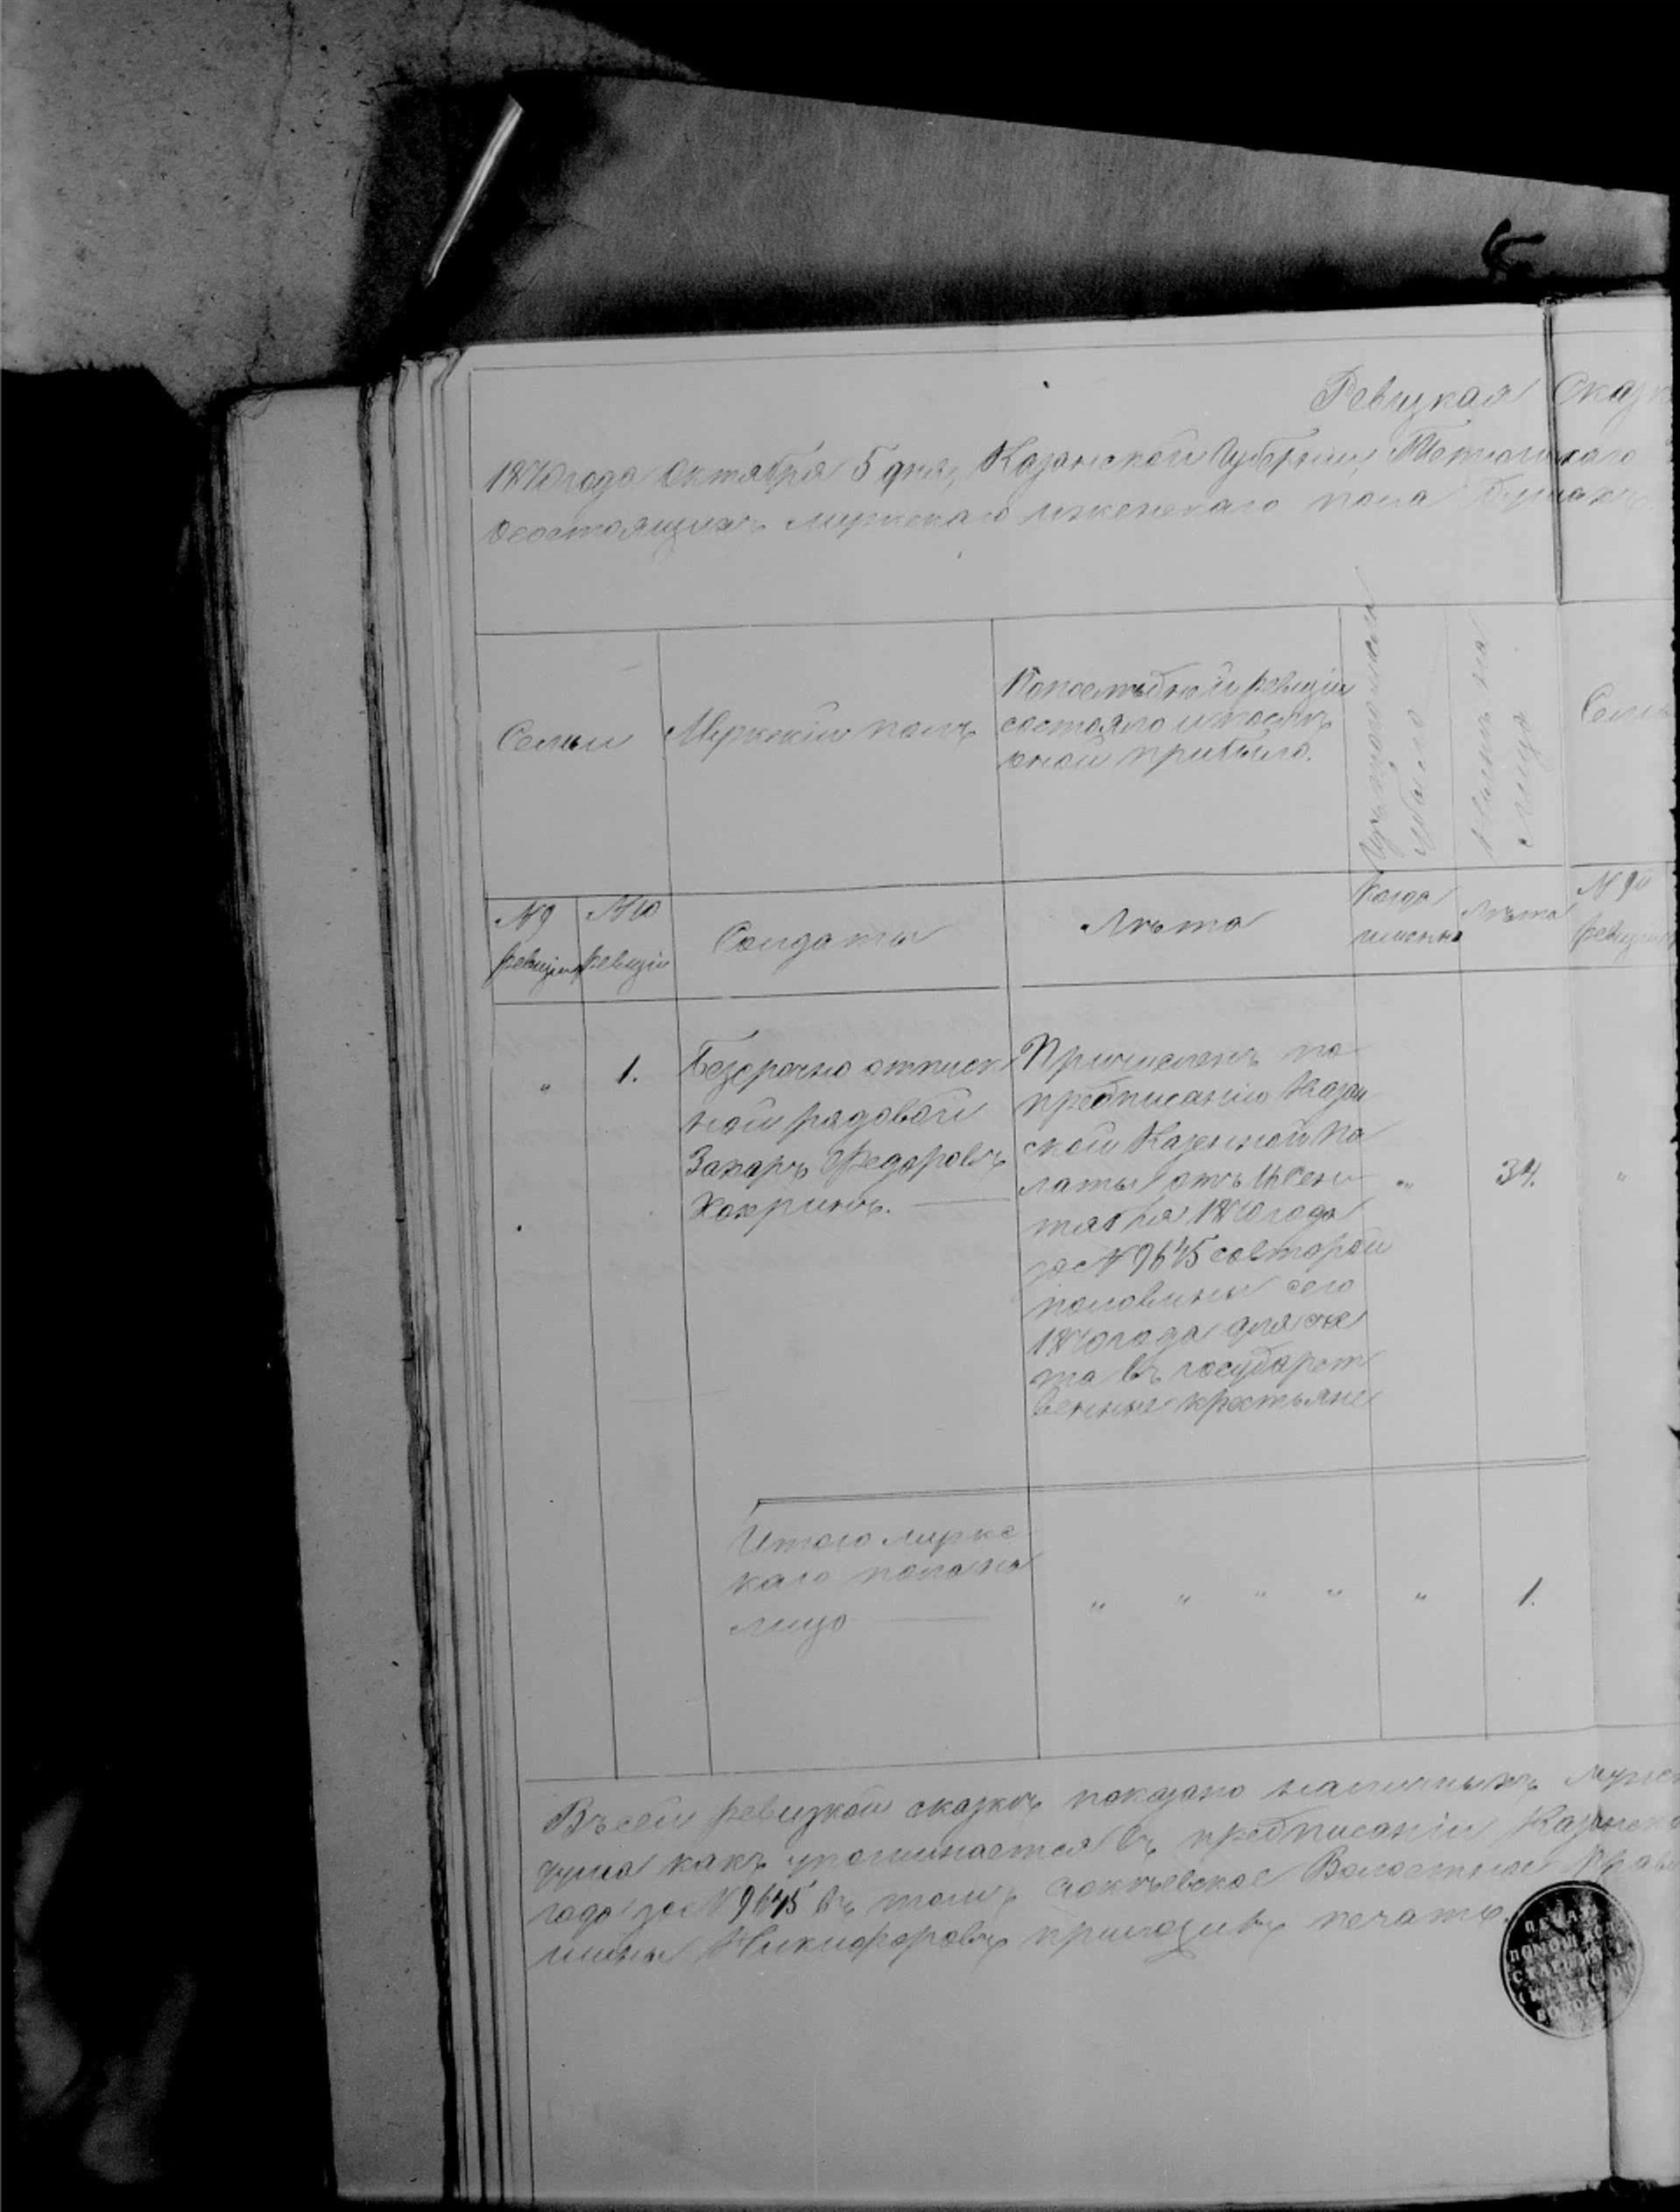 Ревизкая Сказк
1870 года Октября 5 дня, Казанской Губернiи, Тетюшскаго
о состоящихъ мужскаго и женскаго пола
Семьи
Мужской полъ
По последней ревизiи
состояло и после
оной прибыло.
Изъ того числа
выбыло
Нынѣ на
лицо
Семьи
№ 9 ревизiи
№ 10 ревизiи
Солдаты
Лѣта
Когда имянно
Лѣта
№ 9й ревизiи
"
1.
Безсрочно отпуск
ной рядовой
Захаръ Федоровъ
Хохринъ.
Причисленъ по
предписанiю Казан
ской Казенной Па
латы отъ Сен
тября 1870 года
за № 9645 со второй
половины сего
1870 года для сче
та въ государст
венные крестьяне
"
34.
"
Итого мужс
каго пола на
лицо
" " " " "
1.
Въ сей ревизкой сказкѣ показано наличныхъ мужск
душа какъ упоминается въ предписанiи Казанско
года за № 9645 въ томъ Волостное Прав
шины Никифоровъ приложилъ печать.
ПЕЧАТЬ
ПОМОЩ